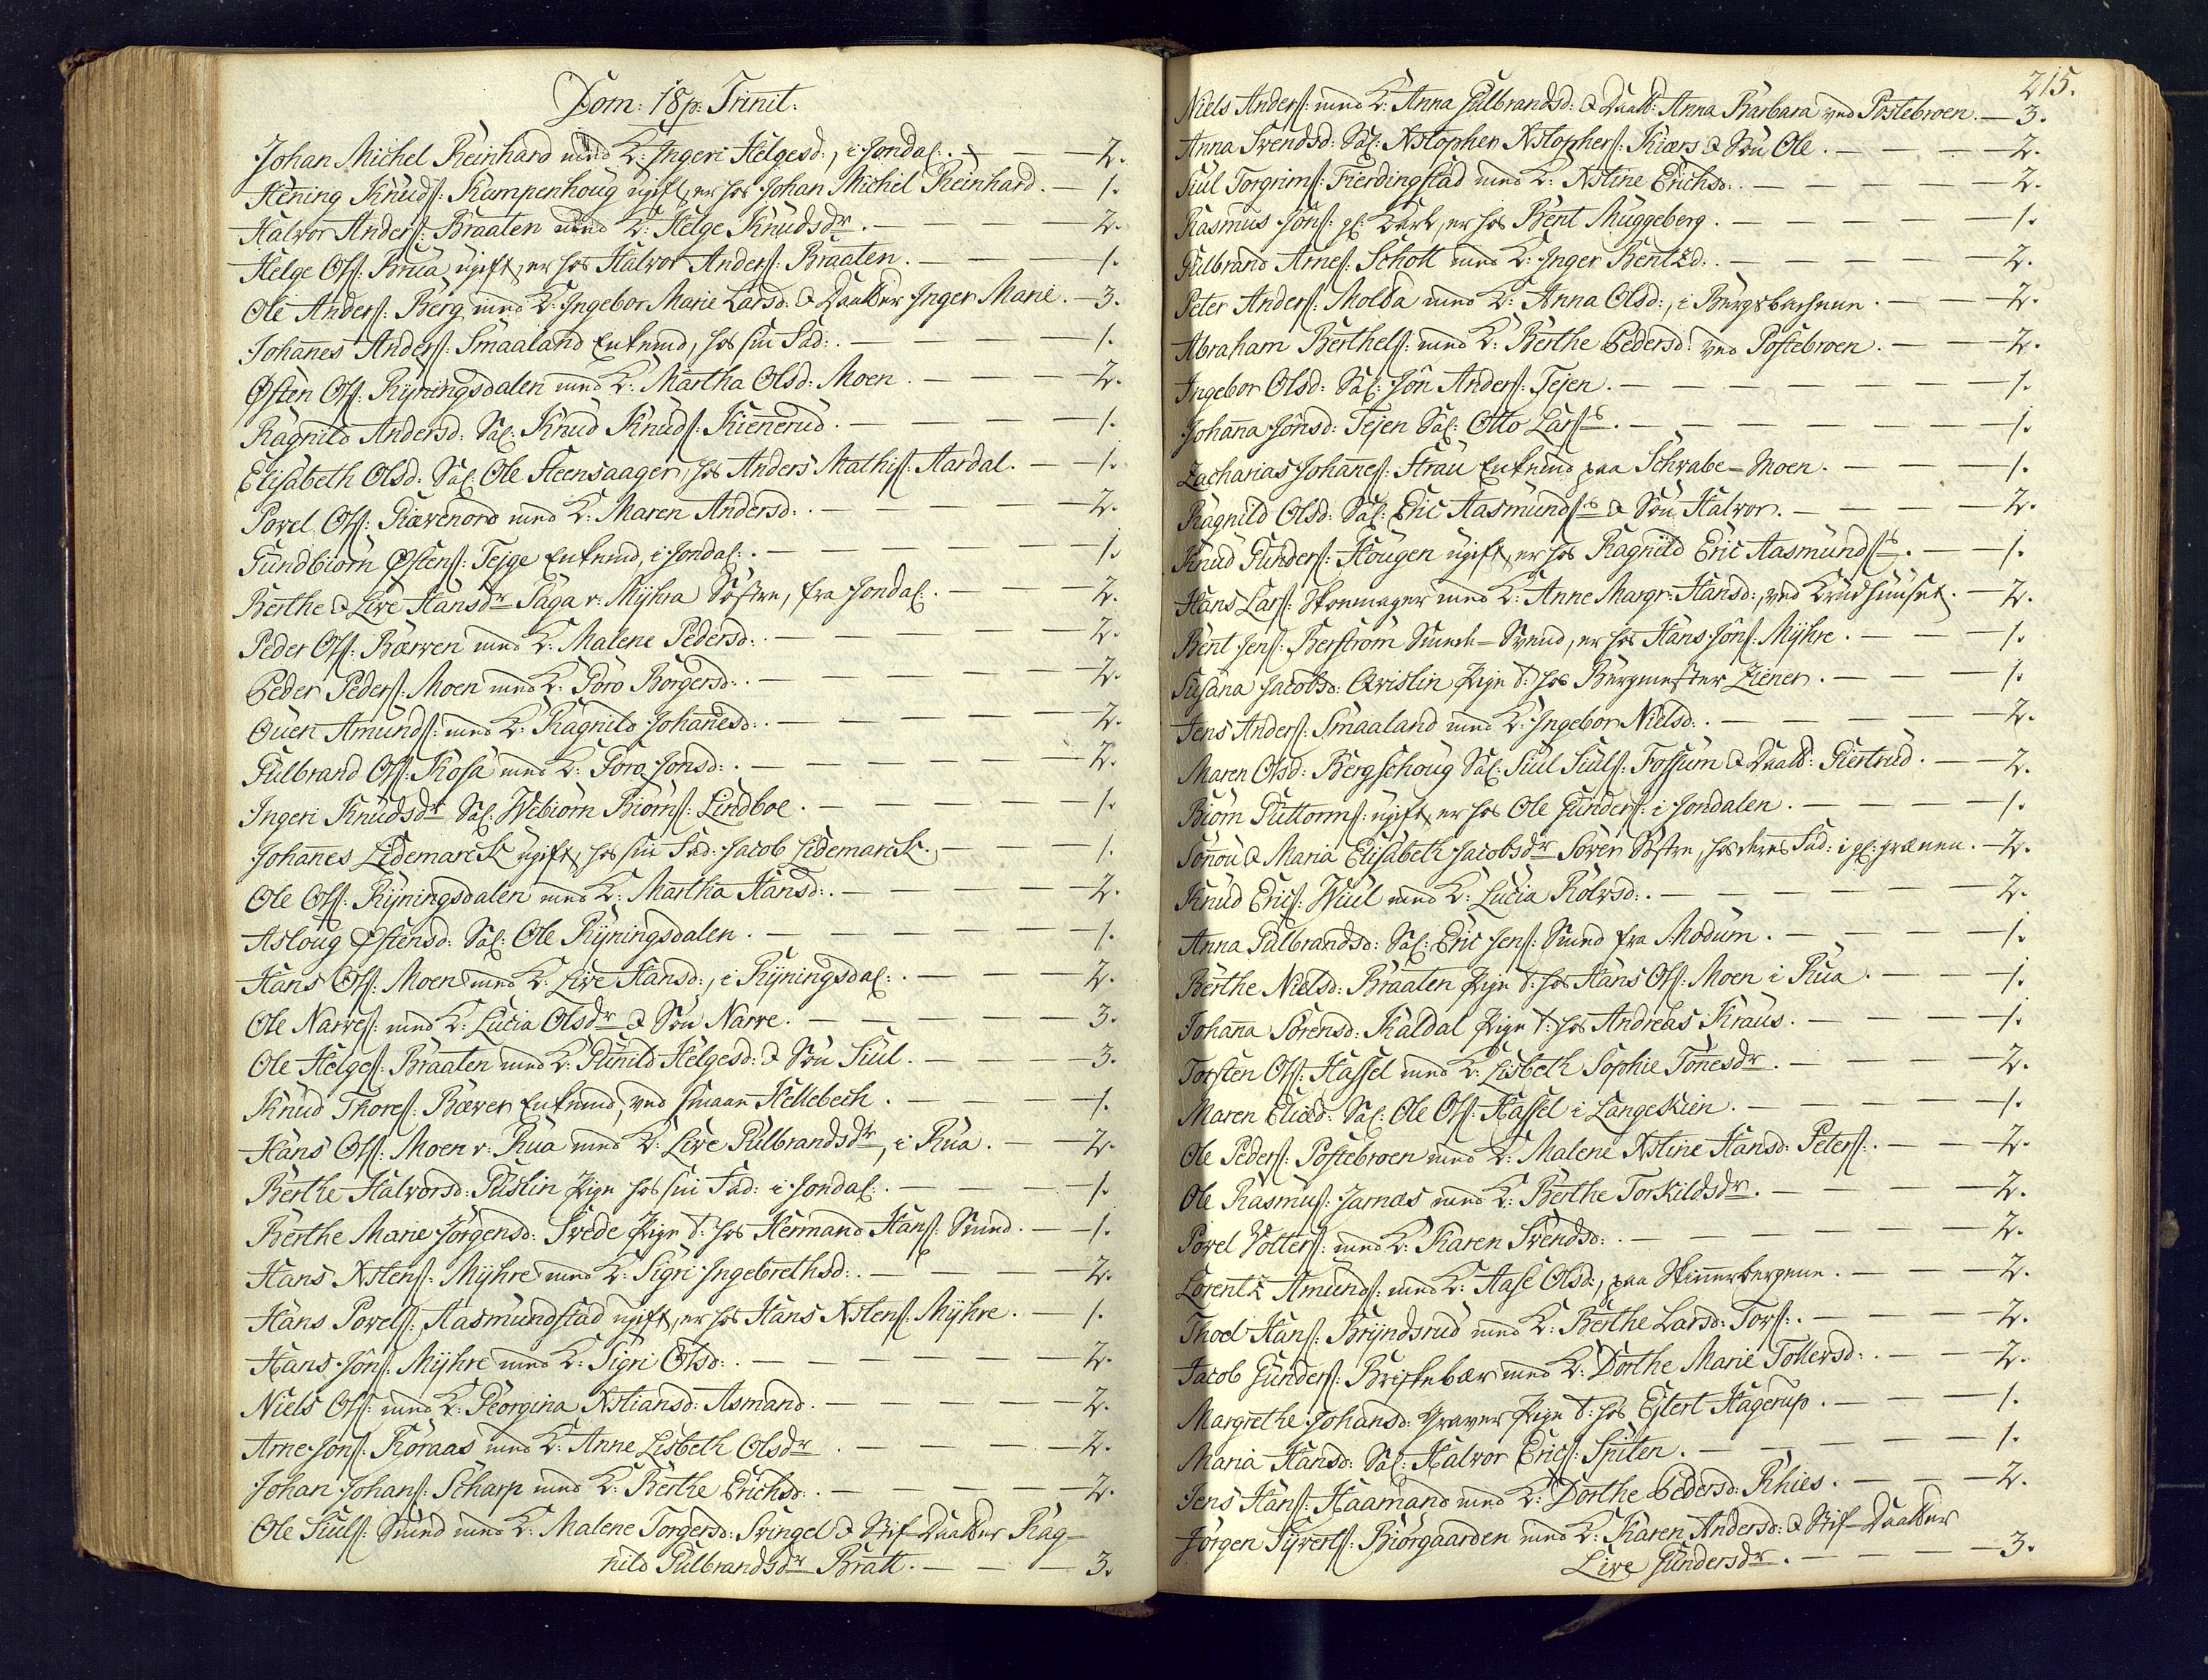 Dom: 18 p: Trinit:
Johan Michel Reinhard med K: Ingeri Helgesd:, i Jondal: . — — 2.
Hening Knuds: Kumpenhoug ugift, er hos Johan Michel Reinhard. — 1.
Halvor Anders: Braaten med K: Helge Knudsdr. — — — 2.
Helge Ols: Brua ugift, er hos Halvor Anders: Braaten. — — — 1.
Ole Anders: Berg med K: Ingebor Marie Larsd: & Daatter Inger Marie. — 3.
Johanes Anders: Smaaland Enkemd, hos sin Sød: . — — — 1.
Østen Ols: Ryningsdalen med K: Martha Olsd: Moen. — — — 2.
Ragnild Andersd: Sal: Knud Knuds: Kienerud. — — — — 1.
Elisabeth Olsd: Sal: Ole Steensaager, hos Anders Mathis: Aardal. — 1.
Povel Ols: Rævenord med K: Maren Andersd: . — — — — 2.
Gundbiørn Østens: Tejge Enkemd, i Jondal: . — — — — 1.
Berthe & Live Hansdr Saga v: Myhra Søstre, fra Jondal: . — — 2.
Peder Ols: Bærven med K: Malene Pedersd: . — — — — 2.
Peder Peders: Moen med K: Goro Borgersd: . — — — — 2.
Ouen Amunds: med K: Ragnild Johanesd: . — — — — 2.
Gulbrand Ols: Rosa med K: Goro Jonsd: . — — — — 2.
Ingeri Knudsdr Sal: Webiørn Biørns: Lindboe. — — — — 1.
Johanes Lidemarck ugift, hos sin Fad: Jacob Lidemarck. — — 1.
Ole Ols: Ryningsdalen med K: Martha Hansd: . — — — 2.
Asloug Østensd: Sal: Ole Ryningsdalen. — — — — 1.
Hans Ols: Moen med K: Live Hansd:, i Ryningsdal: . — — — 2.
Ole Narves: med K: Lucia Olsdr & Søn Narve. — — — — 3.
Ole Helges: Braaten med K: Gunild Helgesd: & Søn Siul. — — — 3.
Knud Thores: Bæver Enkemd, ved Smaae Hellebech. — — — 1.
Hans Ols: Moen v: Rua med K: Live Gulbrandsdr, i Rua. — — 2.
Berthe Halvorsd: Puslin Pige hos sin Fad: i Jondal: . — — — 1.
Berthe Marie Jørgensd: Svede Pige t: hos Hermand Hans: Smed. — 1.
Hans Xstens: Myhre med K: Sigri Ingebrethsd: . — — — 2.
Hans Povels: Aasmundstad ugift, er hos Hans Xstens: Myhre. — 1.
Hans Jøns: Myhre med K: Sigri Olsd: . — — — — 2.
Niels Ols: med K: Georgina Xstiansd: Asmand. — — — — 2.
Arne Jons: Roraas med K: Anne Lisbeth Olsdr . — — — 2.
Johan Johans: Scharp med K: Berthe Erichsd: . — — — — 2.
Ole Siuls: Smed med K: Malene Torgersd: Svingel & Stif-Daatter Rag-
nild Gulbrandsdr Bratt. — — — 3.
215.
Niels Anders: med K: Anna Gulbrandsd: & Daatt: Anna Barbara ved Postebroen. — 3.
Anna Svendsd: Sal: Xstopher Xstophers: Kiærs & Søn Ole. — — — 2.
Siul Torgrims: Fierdingstad med K: Xstine Erichsd: . — — — 2.
Rasmus Jøns: gl: Karl, er hos Bent Muggeberg. — — — — 1.
Gulbrand Arnes: Schott med K: Inger Bentzd: . — — — 2.
Peter Anders: Molba med K: Anna Olsd:, i Bergsbachene. — — 2.
Abraham Berthels: med K: Berthe Pedersd: ved Postebroen. — — 2.
Ingebor Olsd: Sal: Jøn Anders: Tejen. — — — — — 1.
Johana Jønsd: Tejen Sal: Otto Lars: . — — — — 1.
Zacharias Johanes: Strau Enkemd paa Schwabe-Moen. — — — 1.
Ragnild Olsd: Sal: Eric Aasmunds: & Søn Halvor. — — — 2.
Knud Gunders: Hougen ugift, er hos Ragnild Eric Aasmunds: . — — 1.
Hans Lars: Skoemager med K: Anne Margr: Hansd:, ved Krudhuuset. — 2.
Bent Jens: Berstrøm Smede-Svend, er hos Hans Jøns: Myhre. — — 1.
Susana Jacobsd: Qvistin Pige t: hos Bergmester Ziener. — — — 1.
Jens Anders: Smaaland med K: Ingebor Nielsd: . — — — — 2.
Maren Olsd: Bergschoug Sal: Siul Siuls: Fossum & Daatt: Giertrud. — — 2.
Biørn Guttorms: ugift, er hos Ole Gunders: i Jondalen. — — — 1.
Sønou & Maria Elisabeth Jacobsdr Soren Søstre, hos deres Fad: i gl: grænen. — 2.
Knud Erics: Wiul med K: Lucia Rolvsd: . — — — — — 2.
Anna Gulbrandsd: Sal: Eric Jens: Smed fra Modum. — — — — 1.
Berthe Nielsd: Braaten Pige t: hos Hans Ols: Moen i Rua. — — — 1.
Johana Sørensd: Kaldal Pige t: hos Andreas Kraus. — — — — 1.
Torsten Ols: Hassel med K: Lisbeth Sophie Tønesdr. — — — 2.
Maren Eliæd: Sal: Ole Ols: Hassel i Langeskien. — — — — 1.
Ole Peders: Postebroen med K: Malene Xstine Hansd: Peters: . — — 2.
Ole Rasmus: Jarnæs med K: Berthe Torkildsdr. — — — — 2.
Povel Volters: med K: Karen Svendsd: . — — — — — 2.
Lorentz Amunds: med K: Aase Olsd:, paa Skinnerbergene. — — — 2.
Thoel Hans: Bryndsrud med K: Berthe Larsd: Tors: . — — — 2.
Jacob Gunders: Briskebær med K: Dorthe Marie Tollevsd: . — — 2.
Margrethe Johansd: Graver Pige t: hos Ejlert Hagerup. — — — 1.
Maria Hansd: Sal: Halvor Erics: Spiten. — — — — — 1.
Jens Hans: Haamand med K: Dorthe Pedersd: Rhies. — — — 2.
Jørgen Syverts: Biørgaarden med K: Karen Andersd: & Stif-Daatter
Live Gundersdr. — — — — 3.